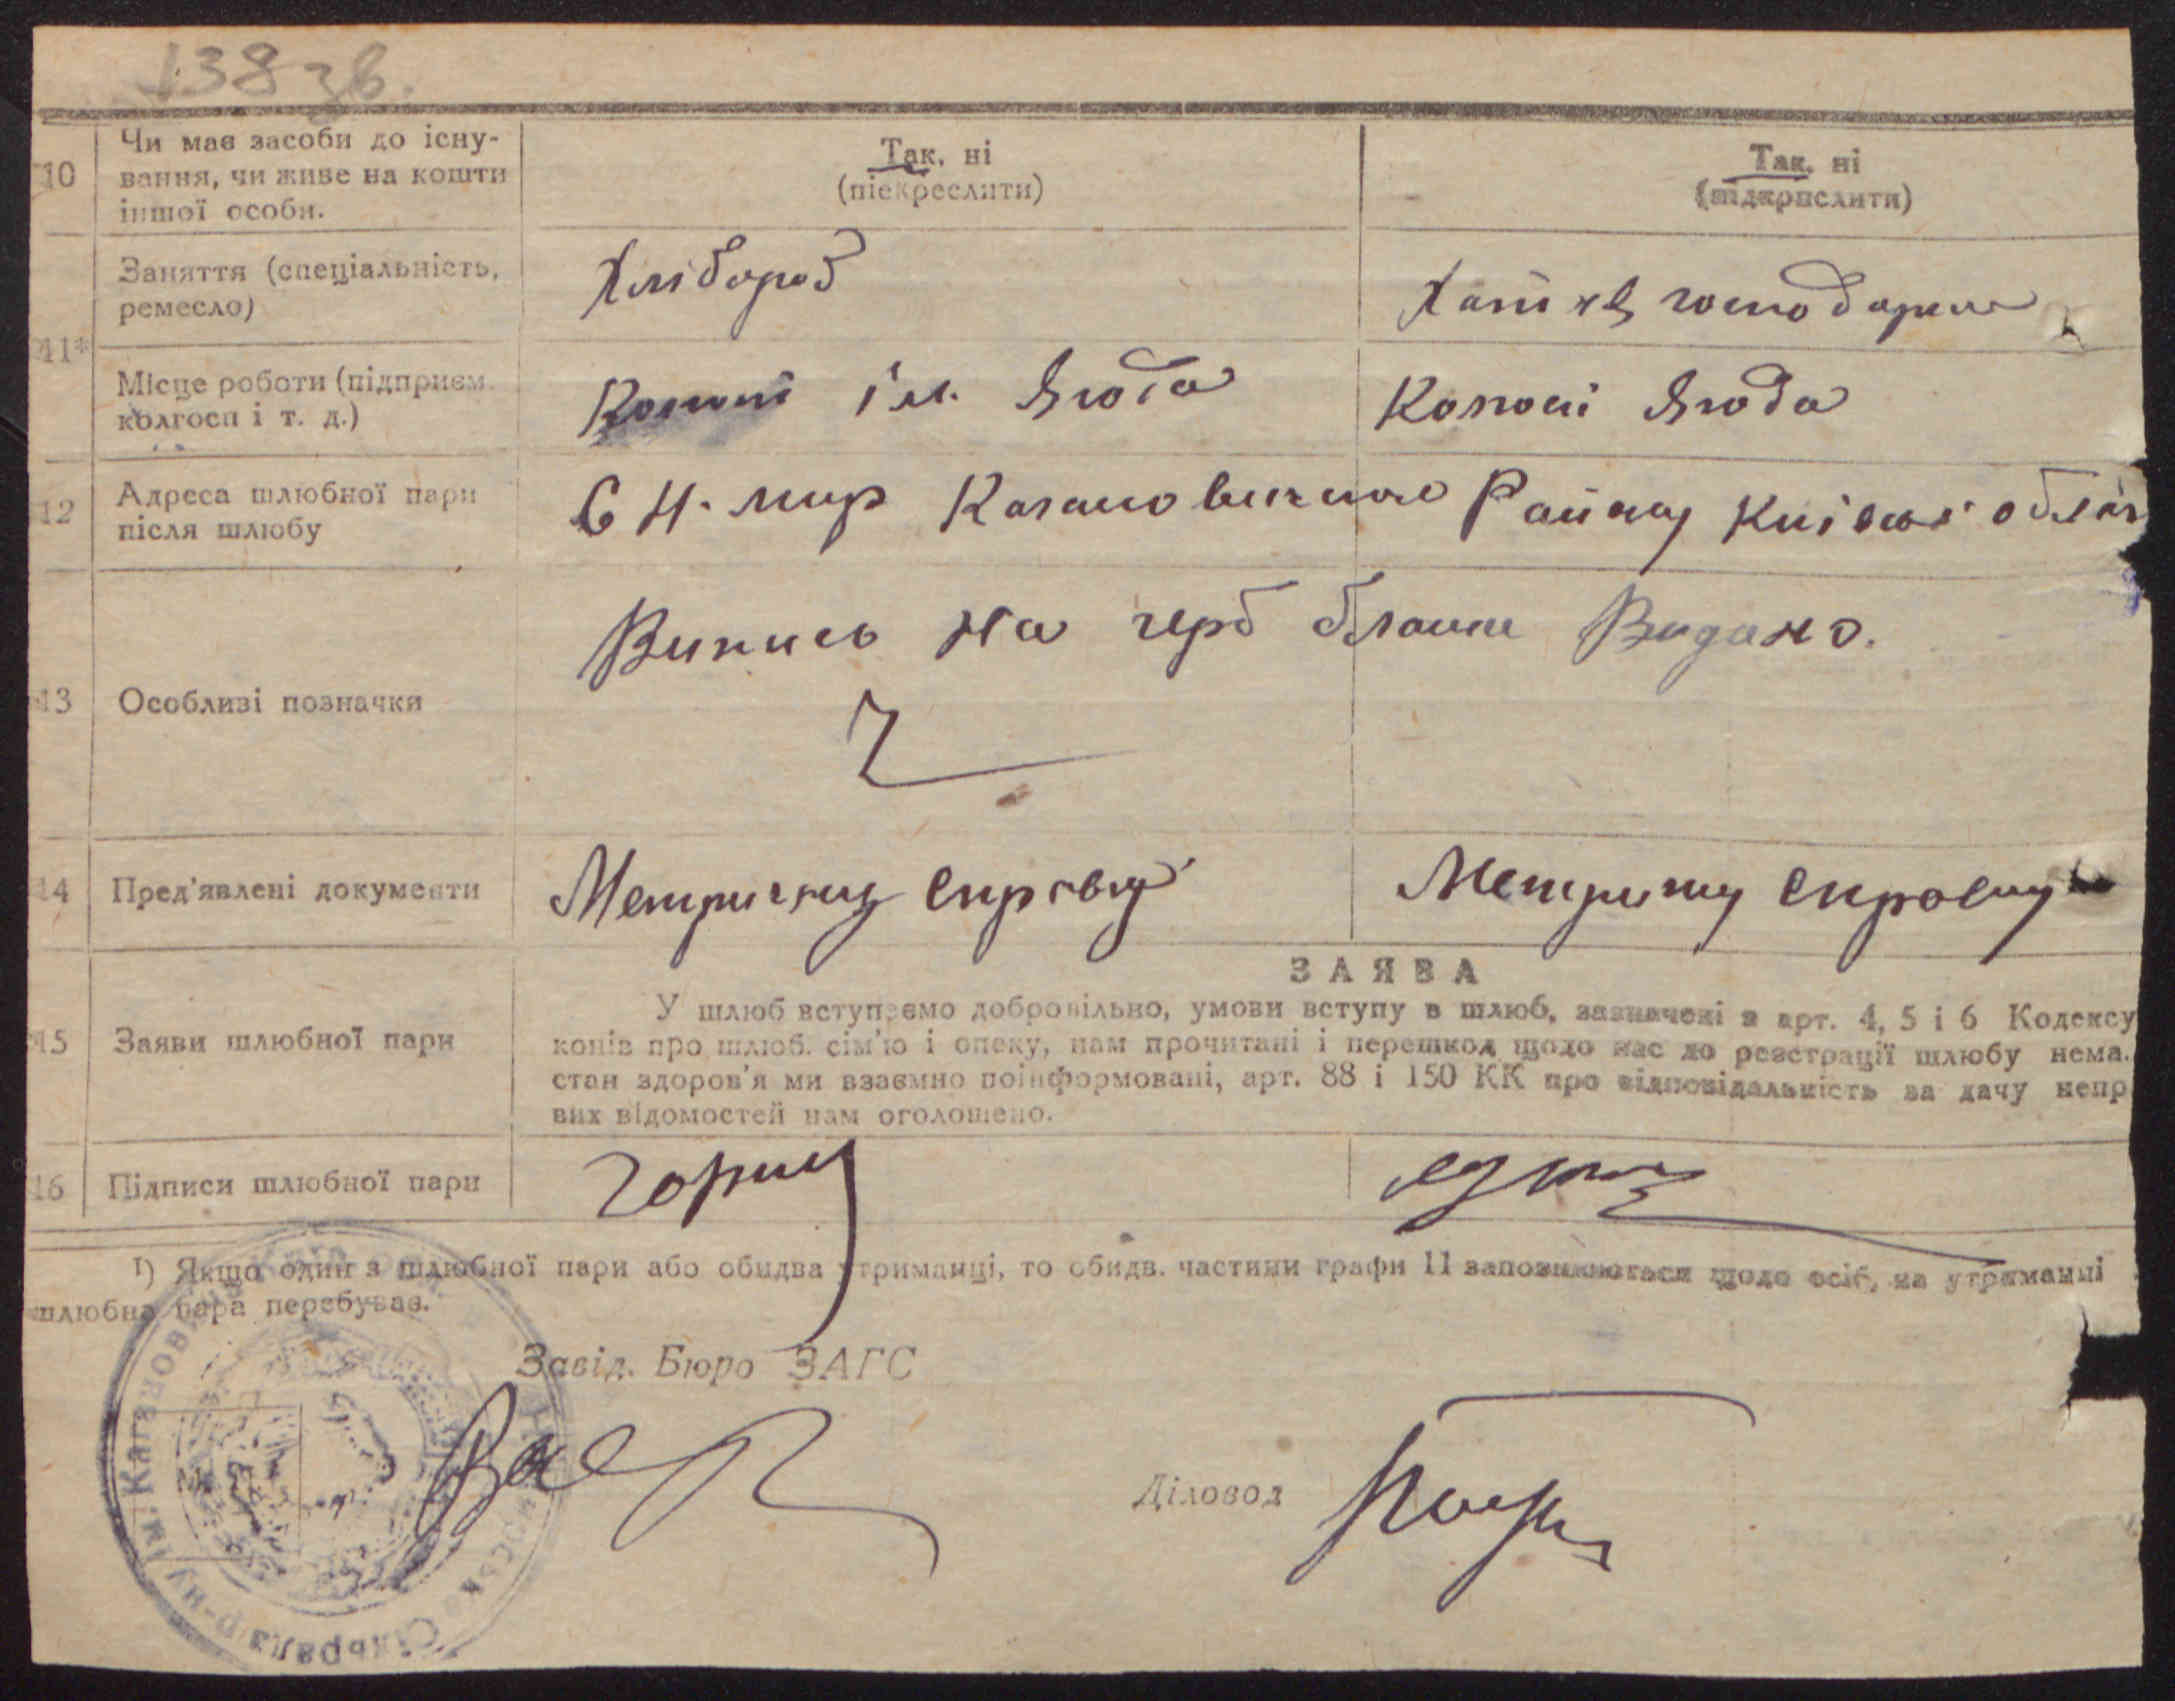 138 зв.
10
Чи має засоби до існу-
вання, чи живе на кошти
іншої особи.
Так, ні
(піекреслити)
Так, ні
(підкрислити)
11*
Заняття (спеціальність,
ремесло)
Хлібороб
Хатнє господарство
Місце роботи (підприєм.
колгосп і т. д.)
Колгосп ім. Ягода
Колгосп Ягода
12
Адреса шлюбної пари
після шлюбу
С Н. мир Кагановичського Району Київської обла
13
Особливі позначки
Випись на герб бланке Видано.
14
Пред'явлені документи
Метричну справку
Метричну справку
15
Заяви шлюбної пари
ЗАЯВА
У шлюб вступаємо добровільно, умови вступу в шлюб, зазначені в арт. 4, 5 і 6 Кодексу
конів про шлюб. сім'ю і опеку, нам прочитані і перешкод щодо нас до реєстрації шлюбу нема.
стан здоров'я ми взаємно поінформовані, арт. 88 і 150 КК про відповідальність за дачу непр
вих відомостей нам оголошено.
16
Підписи шлюбної пари
1) Якщо один з шлюбної пари або обидва утриманці, то обидв. частини графи 11 заповнюються щодо осіб, на утриманні
шлюбна пара перебуває.
Завід. Бюро ЗАГС
Діловод
Сільрада р-ну ім. Кагановича